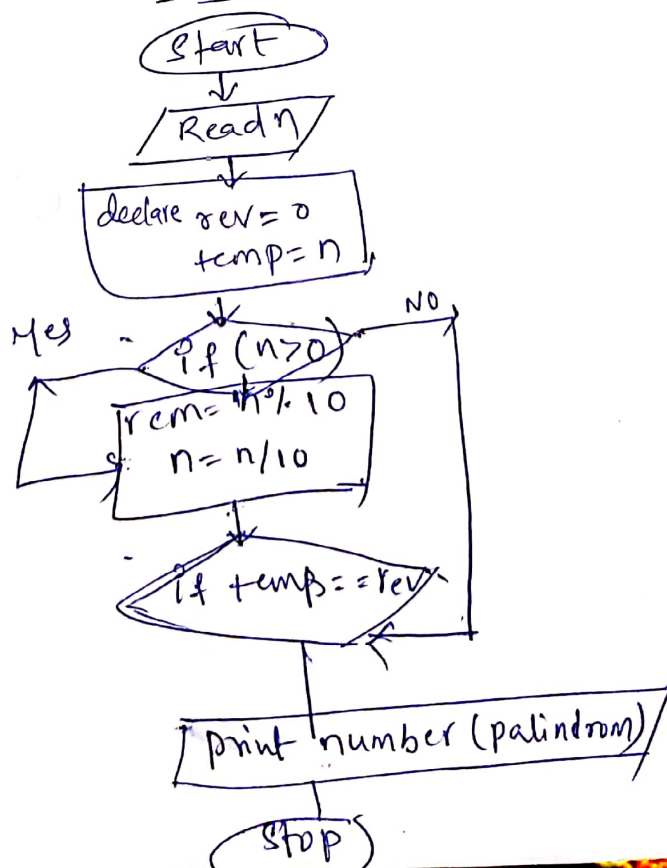 Start
Read n
declare rev = 0
temp = n
Yes
if (n>0)
NO
rem = n % 10
n = n/10
if temp == rev
print number (palindrom)
Stop